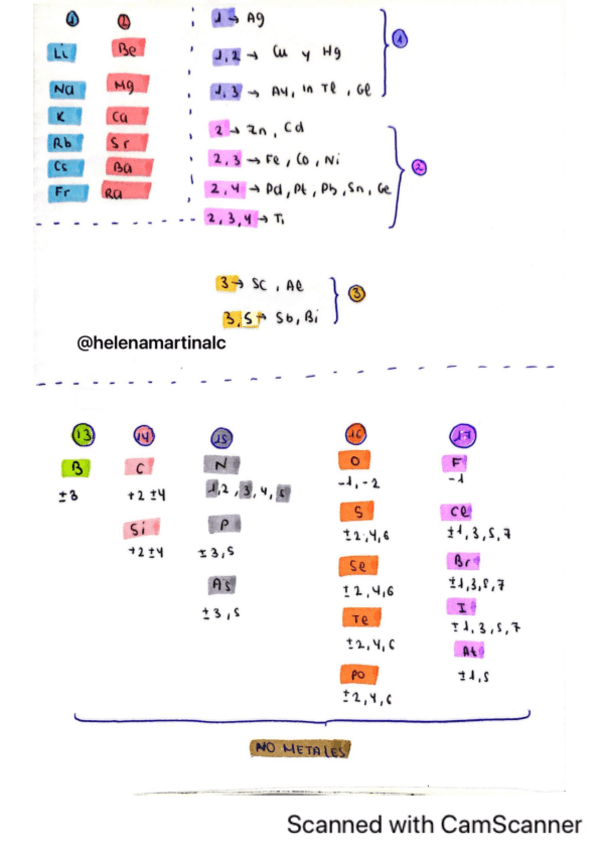 1 2
Li Be
Na Mg
K Ca
Rb Sr
Cs Ba
Fr Ra
1 → Ag
1, 2 → Cu y Hg
1, 3 → Au, in Tl, Ga
1
2 → Zn, Cd
2, 3 → Fe, Co, Ni
2, 4 → Pd, Pt, Pb, Sn, Ge
2, 3, 4 → Ti
2
3 → SC, Al
3, 5 → Sb, Bi
3
@helenamartinalc
13 14 15 16 17
B C N O F
±3 +2 ±4 1, 2, 3, 4, 5 -1, -2 -1
Si P S Cl
+2 ±4 ±3, 5 ±2, 4, 6 ±1, 3, 5, 7
As Se Br
±3, 5 ±2, 4, 6 ±1, 3, 5, 7
Te I
±2, 4, 6 ±1, 3, 5, 7
PO At
±2, 4, 6 ±1, 5
NO METALES
Scanned with CamScanner